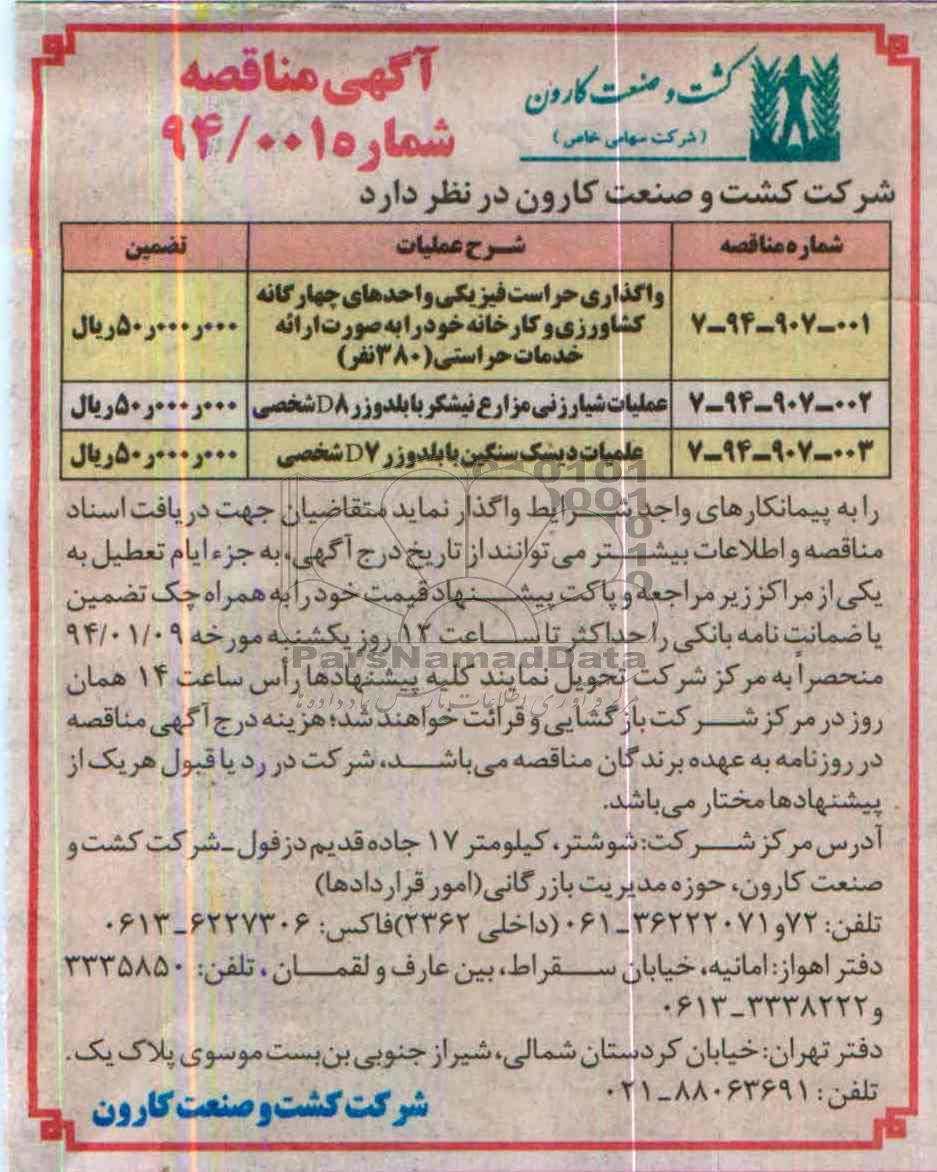 آگهی مناقصه
شماره ۹۴/۰۰۱
کشت و صنعت کارون
(شرکت سهامی خاص)
شرکت کشت و صنعت کارون در نظر دارد
شماره مناقصه شــرح عملیات تضمین
۷-۹۴-۹۰۷-۰۰۱ واگذاری حراست فیزیکی واحدهای چهارگانه کشاورزی و کارخانه خود را به صورت ارائه خدمات حراستی (۳۸۰نفر) ۵۰ر۰۰۰ر۰۰۰ریال
۷-۹۴-۹۰۷-۰۰۲ عملیات شیارزنی مزارع نیشکر با بلدوزر D۸ شخصی ۵۰ر۰۰۰ر۰۰۰ریال
۷-۹۴-۹۰۷-۰۰۳ علمیات دیسک سنگین با بلدوزر D۷ شخصی ۵۰ر۰۰۰ر۰۰۰ریال
را به پیمانکارهای واجد شــرایط واگذار نماید متقاضیان جهت دریافت اسناد
مناقصه و اطلاعات بیشــتر می توانند از تاریخ درج آگهی، به جزء ایام تعطیل به
یکی از مراکز زیر مراجعه و پاکت پیشــنهاد قیمت خود را به همراه چک تضمین
یا ضمانت نامه بانکی را حداکثر تا ســاعت ۱۲ روز یکشنبه مورخه ۹۴/۰۱/۰۹
منحصراً به مرکز شرکت تحویل نمایند کلیه پیشنهادها رأس ساعت ۱۴ همان
روز در مرکز شــرکت بازگشایی و قرائت خواهند شد؛ هزینه درج آگهی مناقصه
در روزنامه به عهده برندگان مناقصه می باشــد، شرکت در رد یا قبول هریک از
پیشنهادها مختار می باشد.
آدرس مرکز شــرکت: شوشتر، کیلومتر ۱۷ جاده قدیم دزفول ـ شرکت کشت و
صنعت کارون، حوزه مدیریت بازرگانی (امور قراردادها)
تلفن: ۷۲و۳۶۲۲۲۰۷۱-۰۶۱ (داخلی ۲۳۶۲) فاکس: ۶۲۲۷۳۰۶-۰۶۱۳
دفتر اهواز: امانیه، خیابان ســقراط، بین عارف و لقمــان، تلفن: ۳۳۳۵۸۵۰
و ۳۳۳۸۲۲۲-۰۶۱۳
دفتر تهران: خیابان کردستان شمالی، شیراز جنوبی بن بست موسوی پلاک یک.
تلفن: ۸۸۰۶۳۶۹۱-۰۲۱
شرکت کشت و صنعت کارون
ParsNamadData